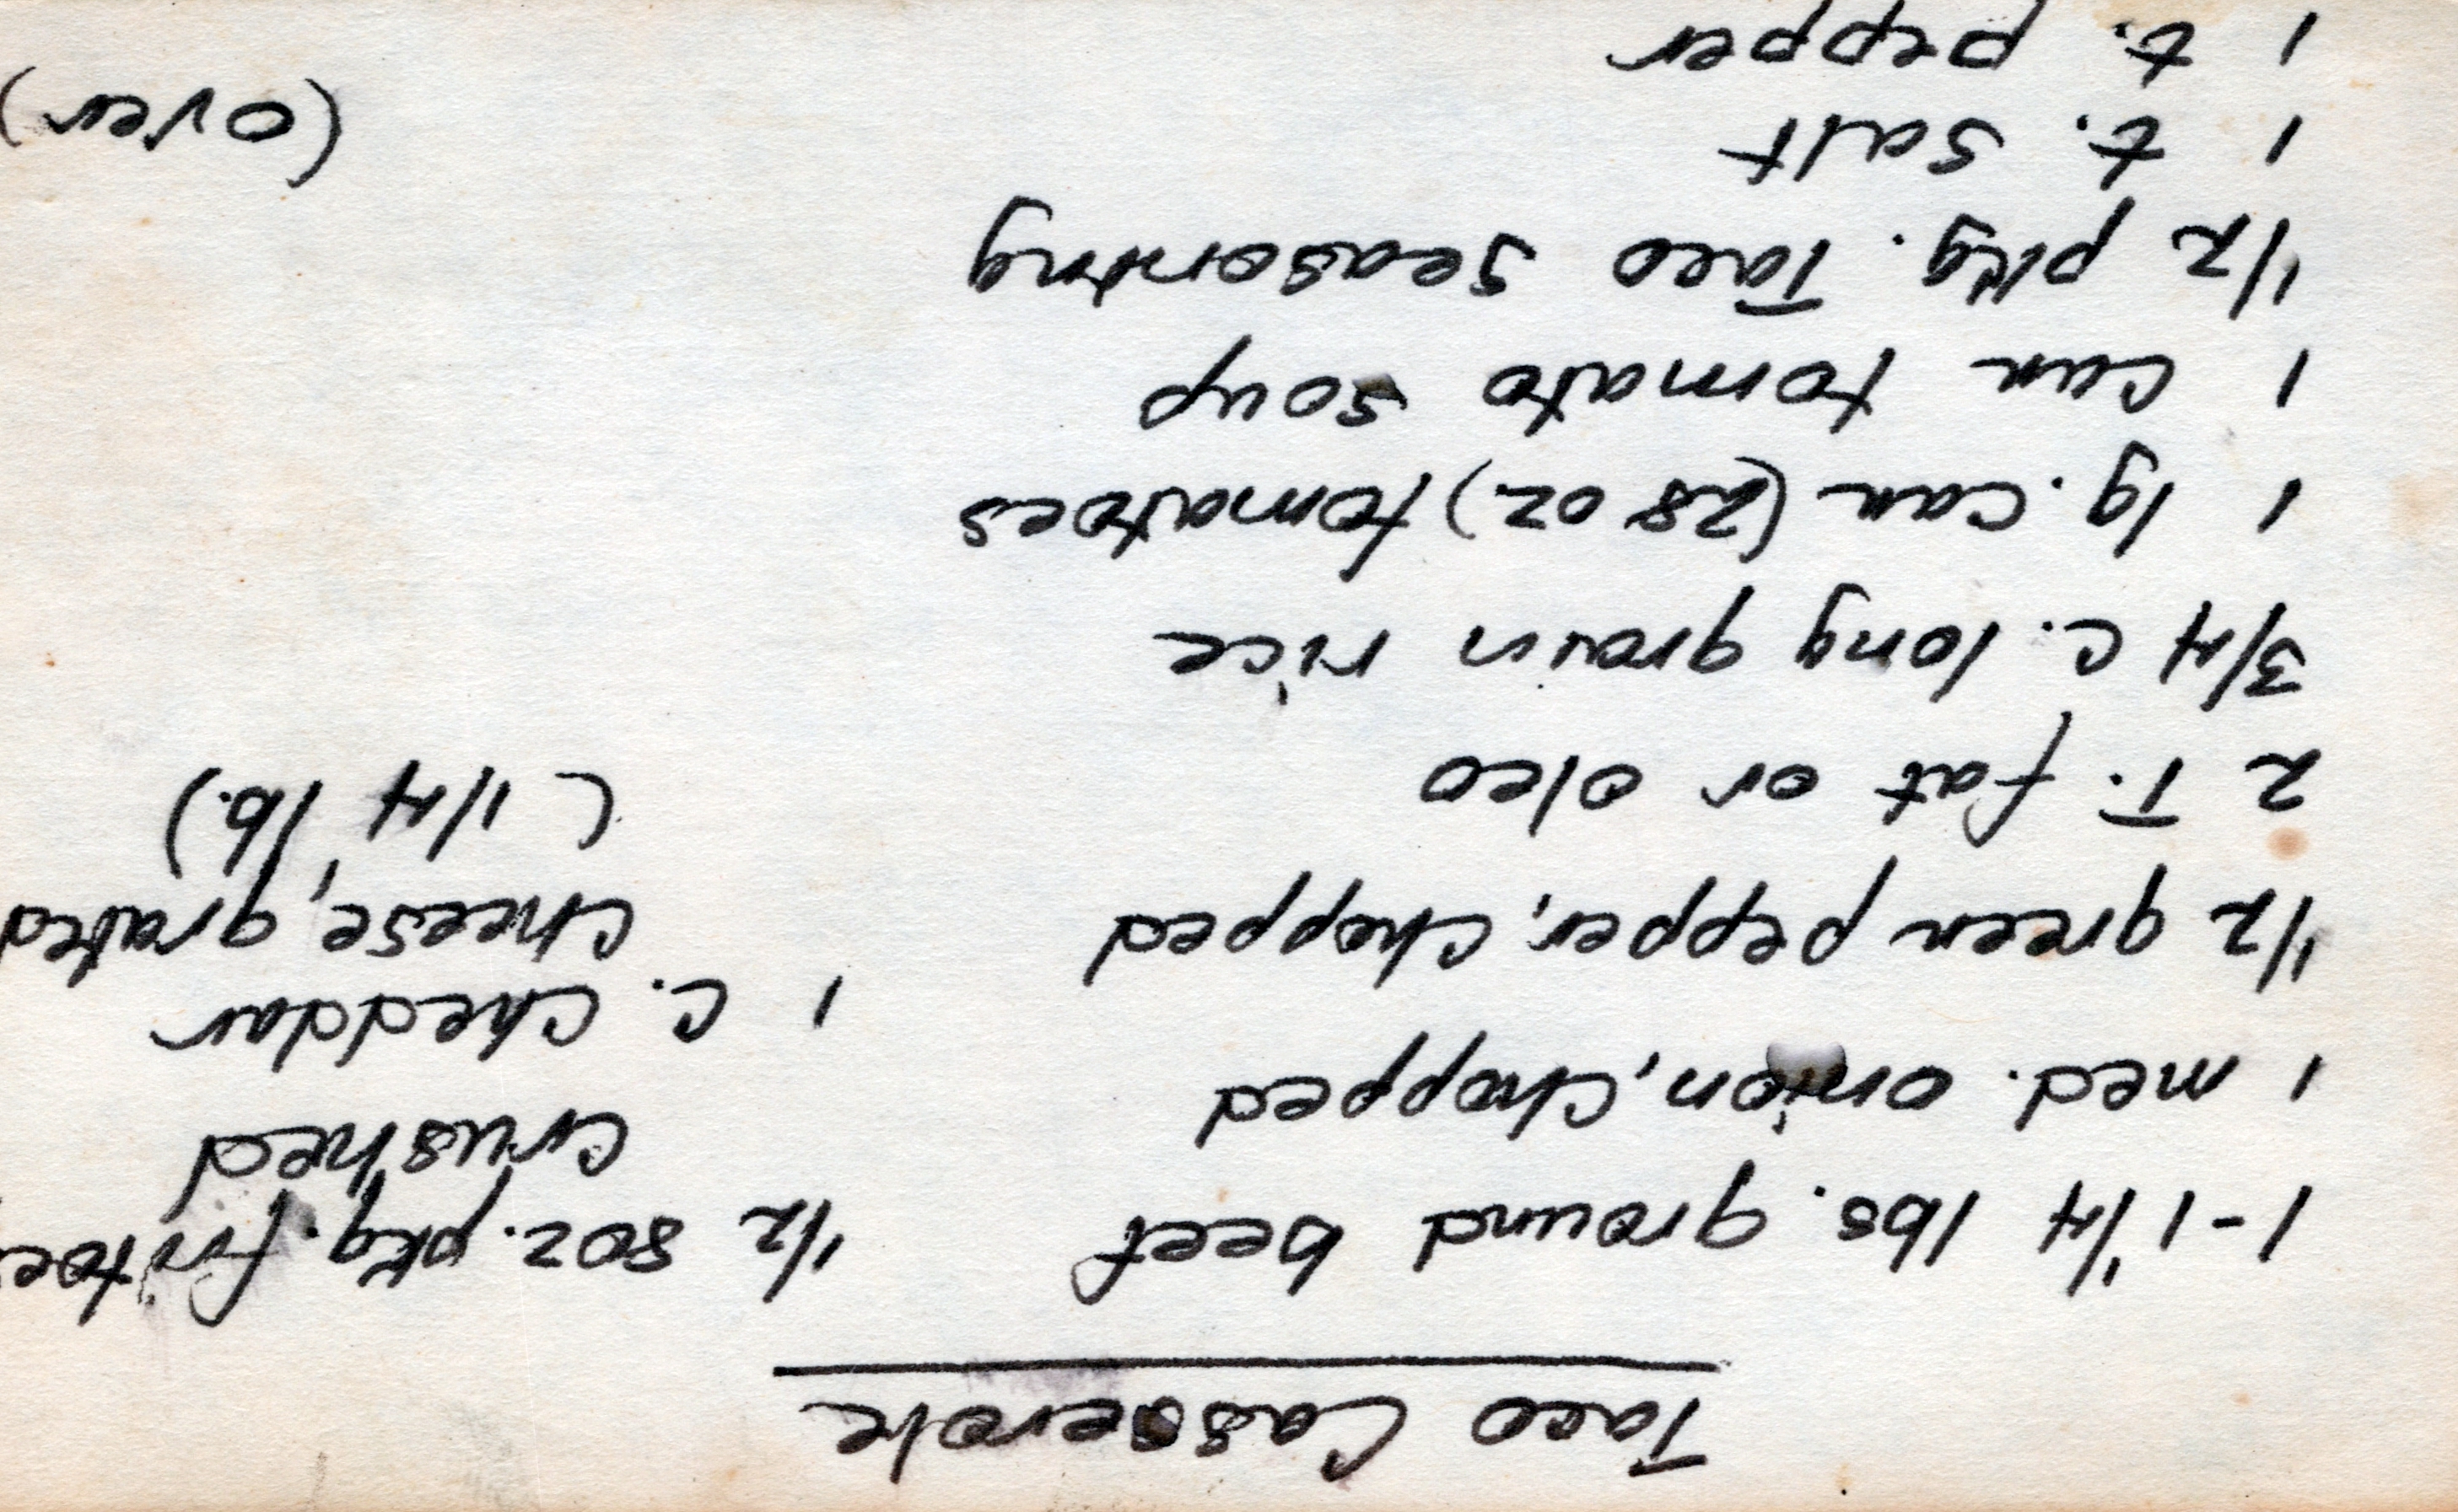 Taco Casserole
1-1 1/4 lbs. ground beef
1 med. onion, chopped
1/2 green pepper, chopped
2 T. fat or oleo
3/4 c. long grain rice
1 lg. can (28 oz.) tomatoes
1 can tomato soup
1/2 pkg. Taco seasoning
1 t. salt
1 t. pepper
1/2 8oz. pkg. fritoes
crushed
1 c. cheddar
cheese, grated
(1/4 lb.)
(over)